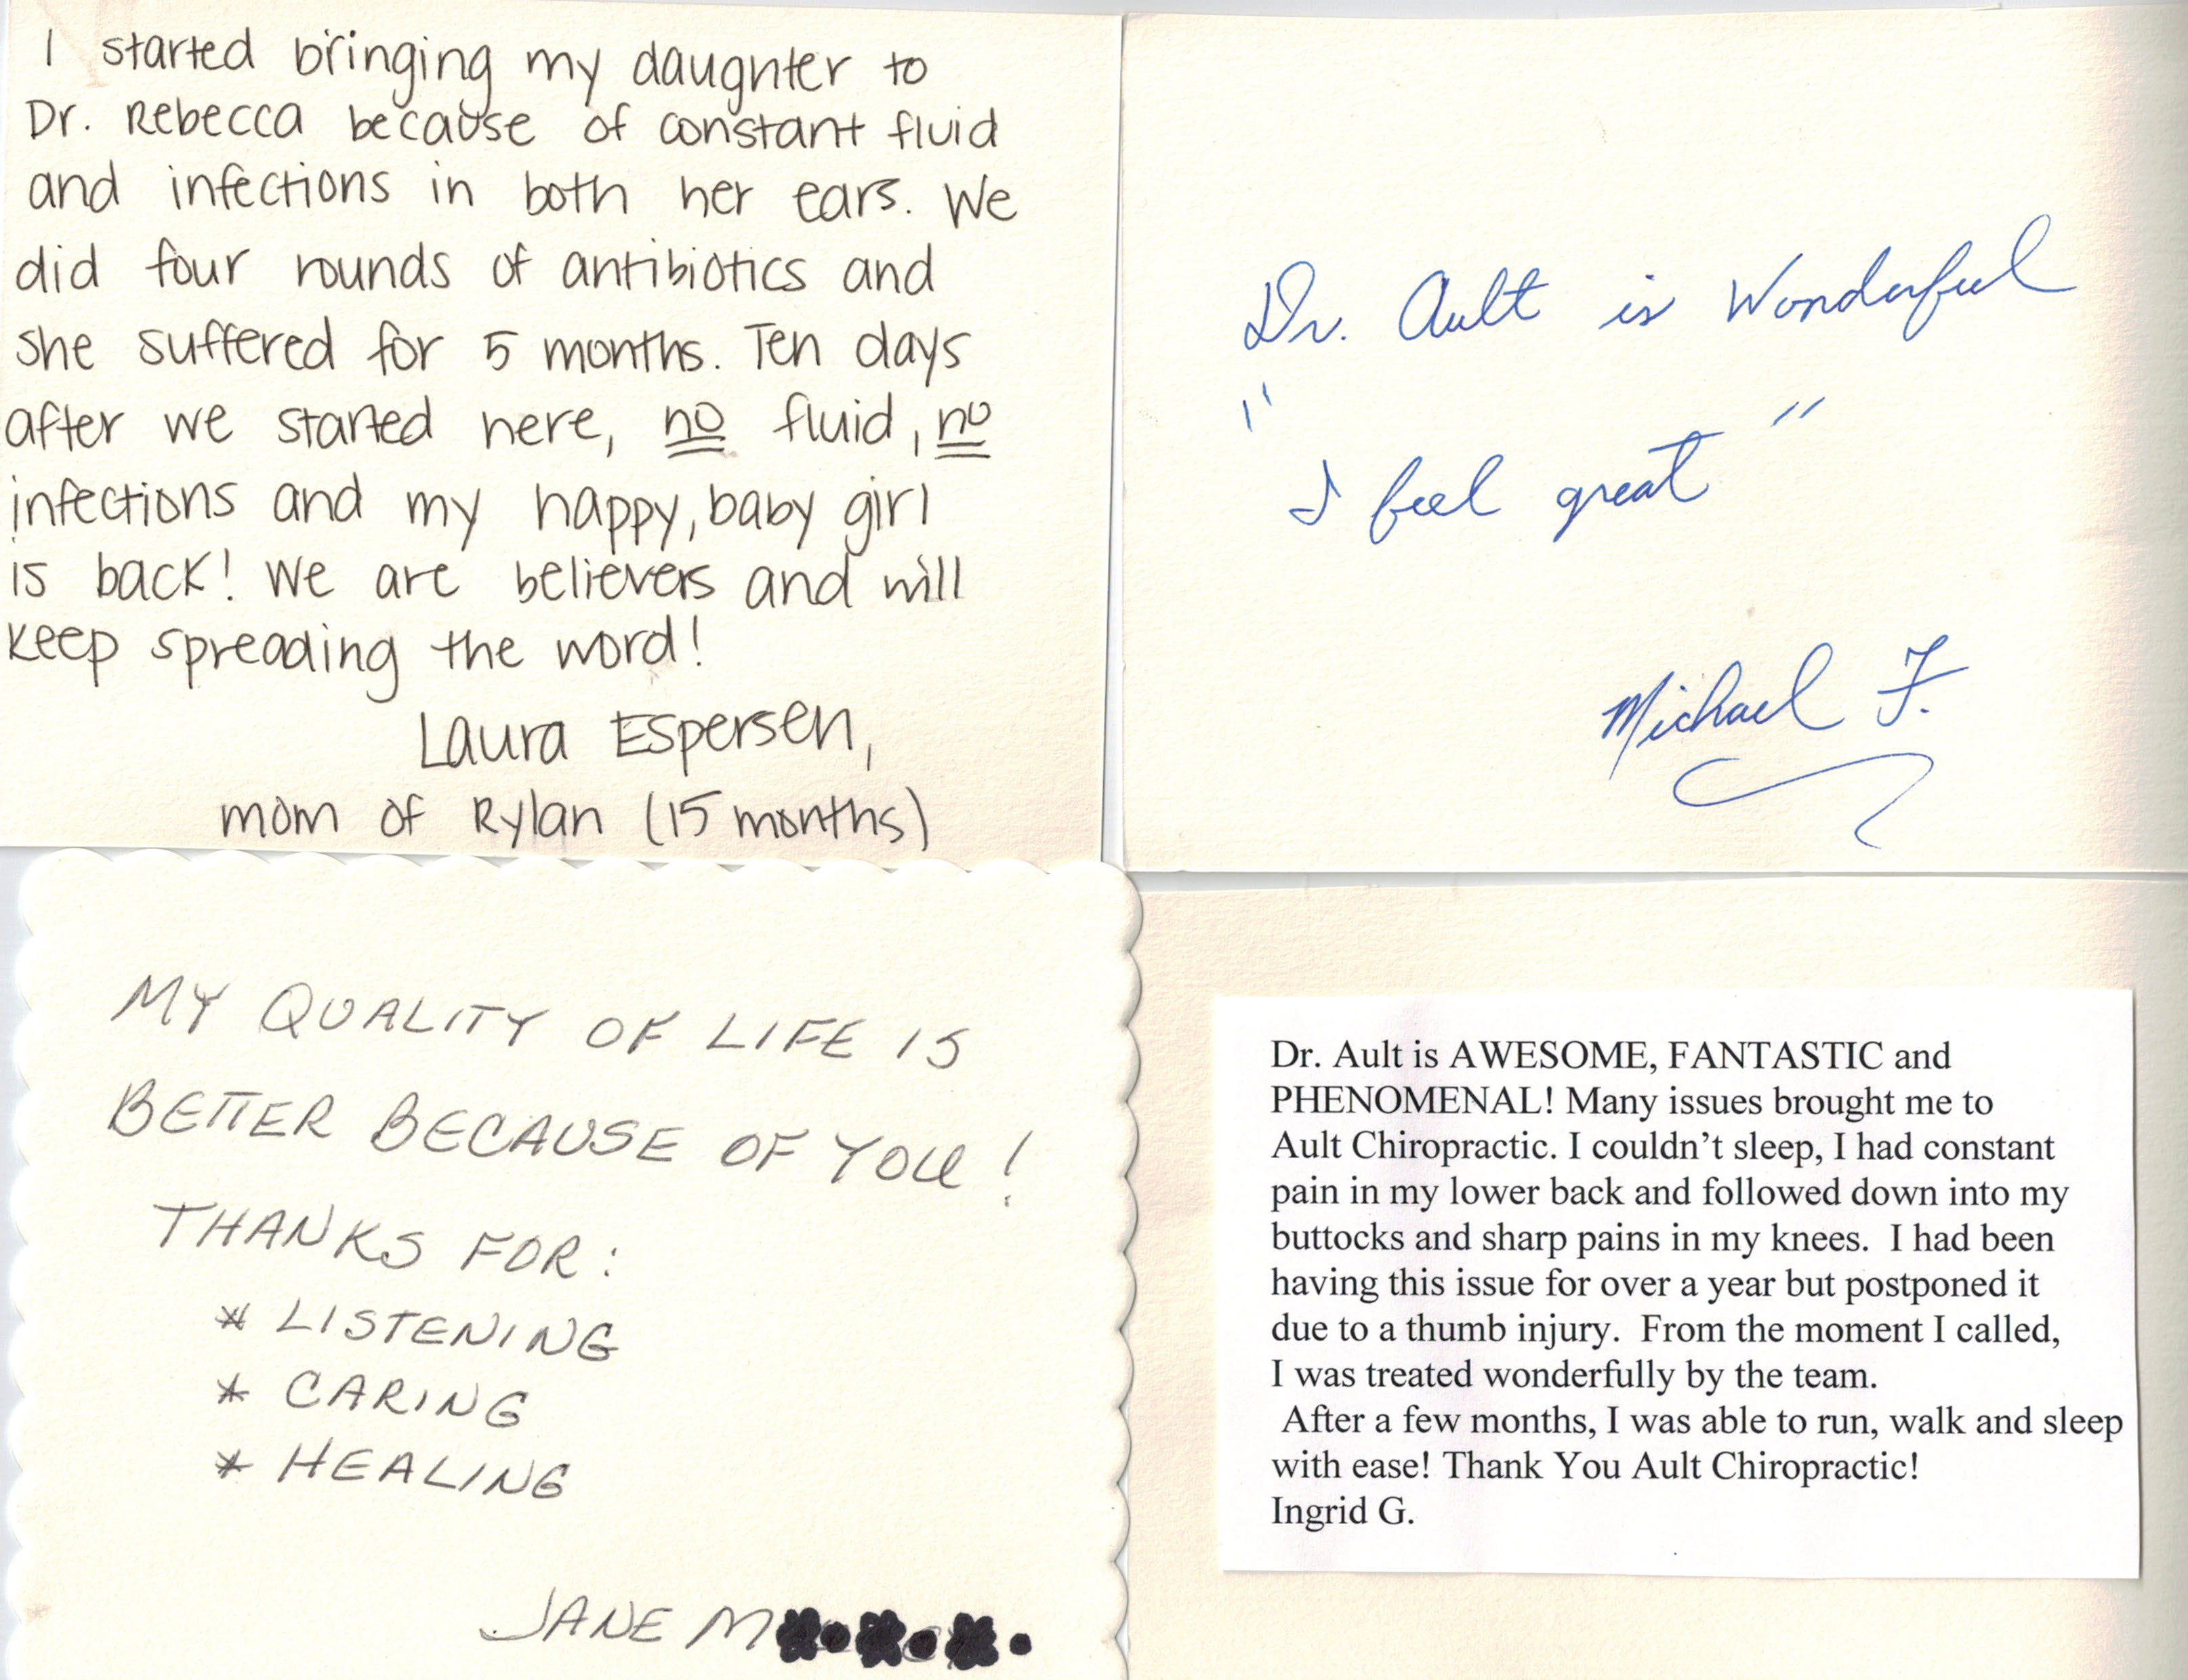 I started bringing my daughter to
Dr. Rebecca because of constant fluid
and infections in both her ears. We
did four rounds of antibiotics and
she suffered for 5 months. Ten days
after we started here, no fluid, no
infections and my happy, baby girl
is back! We are believers and will
keep spreading the word!
Laura Espersen,
mom of Rylan (15 months)
Dr. Ault is Wonderful
"
"
I feel great
Michael F.
MY QUALITY OF LIFE IS
BETTER BECAUSE OF YOU!
THANKS FOR:
* LISTENING
* CARING
* HEALING
JANE M
Dr. Ault is AWESOME, FANTASTIC and
PHENOMENAL! Many issues brought me to
Ault Chiropractic. I couldn't sleep, I had constant
pain in my lower back and followed down into my
buttocks and sharp pains in my knees. I had been
having this issue for over a year but postponed it
due to a thumb injury. From the moment I called,
I was treated wonderfully by the team.
After a few months, I was able to run, walk and sleep
with ease! Thank You Ault Chiropractic!
Ingrid G.